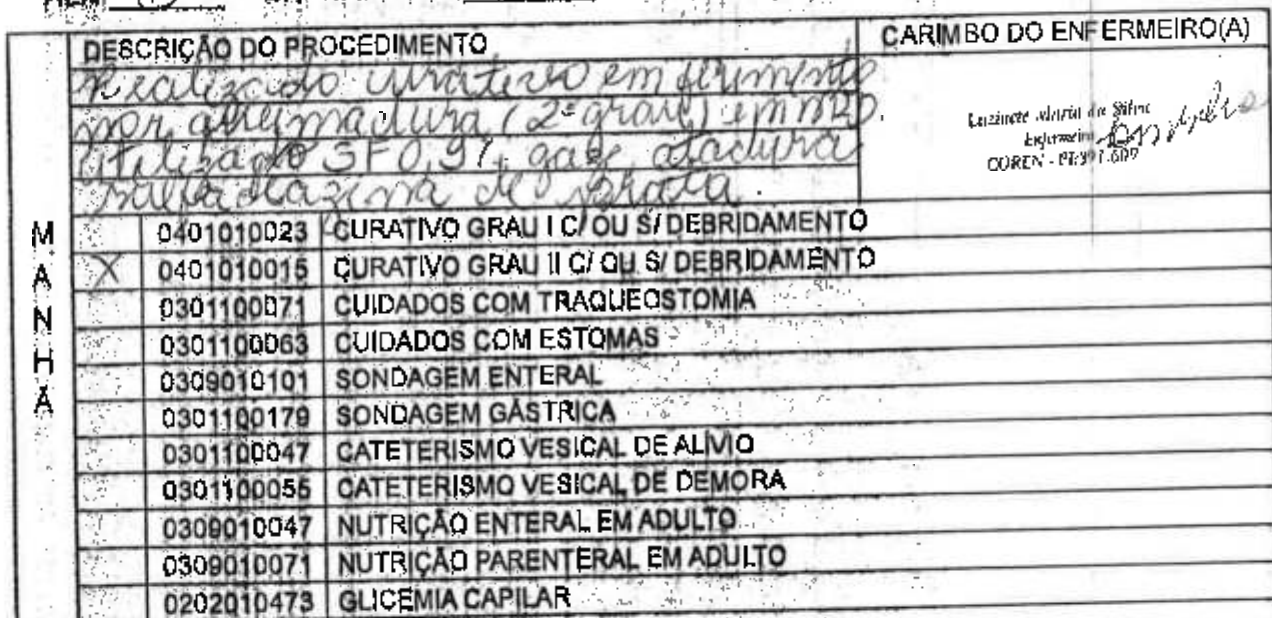 DESCRIÇÃO DO PROCEDIMENTO
CARIMBO DO ENFERMEIRO(A)
Realizado curativo em ferimento
por queimadura (2º grau) em MSD.
Utilizado SF 0,9%, gaze, atadura
sulfadiazina de prata.
Enfermeira
COREN - PE:391.609
MANHÃ
0401010023 CURATIVO GRAU I C/ OU S/ DEBRIDAMENTO
X 0401010015 CURATIVO GRAU II C/ OU S/ DEBRIDAMENTO
0301100071 CUIDADOS COM TRAQUEOSTOMIA
0301100063 CUIDADOS COM ESTOMAS
0309010101 SONDAGEM ENTERAL
0301100179 SONDAGEM GÁSTRICA
0301100047 CATETERISMO VESICAL DE ALÍVIO
0301100055 CATETERISMO VESICAL DE DEMORA
0309010047 NUTRIÇÃO ENTERAL EM ADULTO
0309010071 NUTRIÇÃO PARENTERAL EM ADULTO
0202010473 GLICEMIA CAPILAR